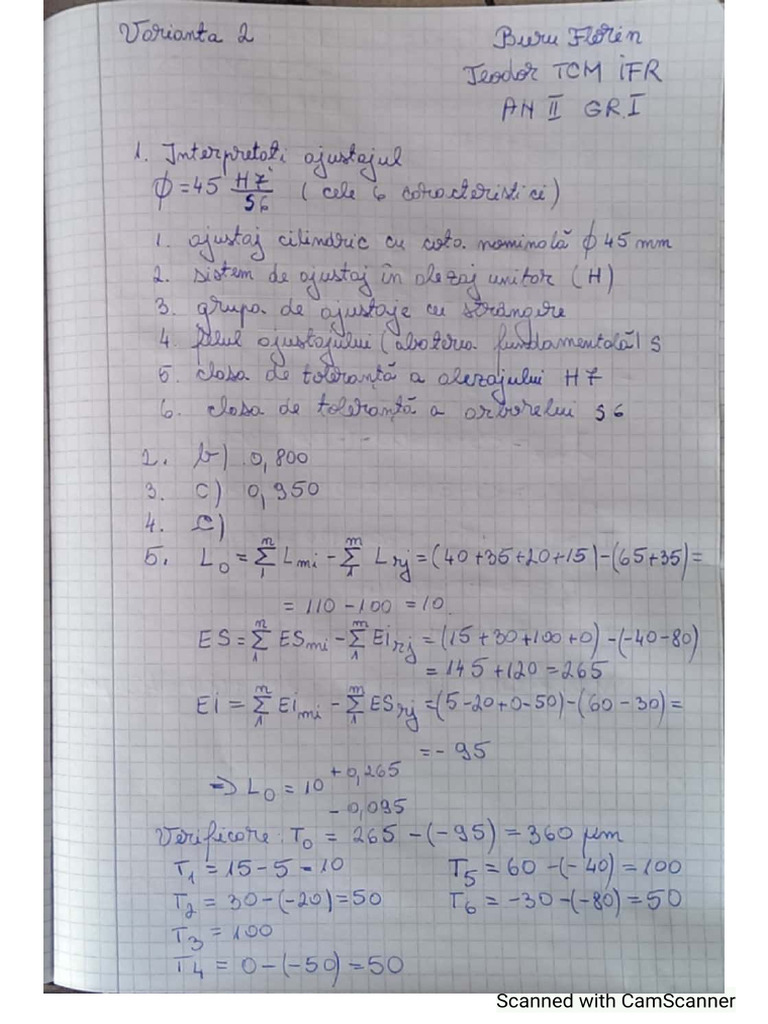 Varianta 2
Buru Florin
Teodor TCM IFR
AN II GR.I
1. Interpretati ajustajul
ϕ=45 H7/S6 (cele 6 caracteristici)
1. ajustaj cilindric cu cota nominală ϕ45 mm
2. sistem de ajustaj în alezaj unitar (H)
3. grupa de ajustaje cu strângere
4. felul ajustajului (abaterea fundamentală) s
5. clasa de toleranță a alezajului H7
6. clasa de toleranță a arborelui s6
2. b) 0,800
3. c) 0,950
4. c)
5. L₀ = Σⁿ₁ Lmi - Σᵐ₁ Lrj = (40+35+20+15)-(65+35)=
= 110-100 = 10
ES = Σⁿ₁ ESmi - Σᵐ₁ Eirj = (15+30+100+0)-(-40-80)
= 145+120=265
Ei = Σⁿ₁ Eimi - Σᵐ₁ ESrj = (5-20+0-50)-(60-30)=
= - 95
⇒ L₀ = 10 +0,265 -0,095
Verificare: T₀ = 265-(-95)=360 μm
T₁ = 15-5=10 T₅ = 60-(-40)=100
T₂ = 30-(-20)=50 T₆ = -30-(-80)=50
T₃ = 100
T₄ = 0-(-50)=50
Scanned with CamScanner